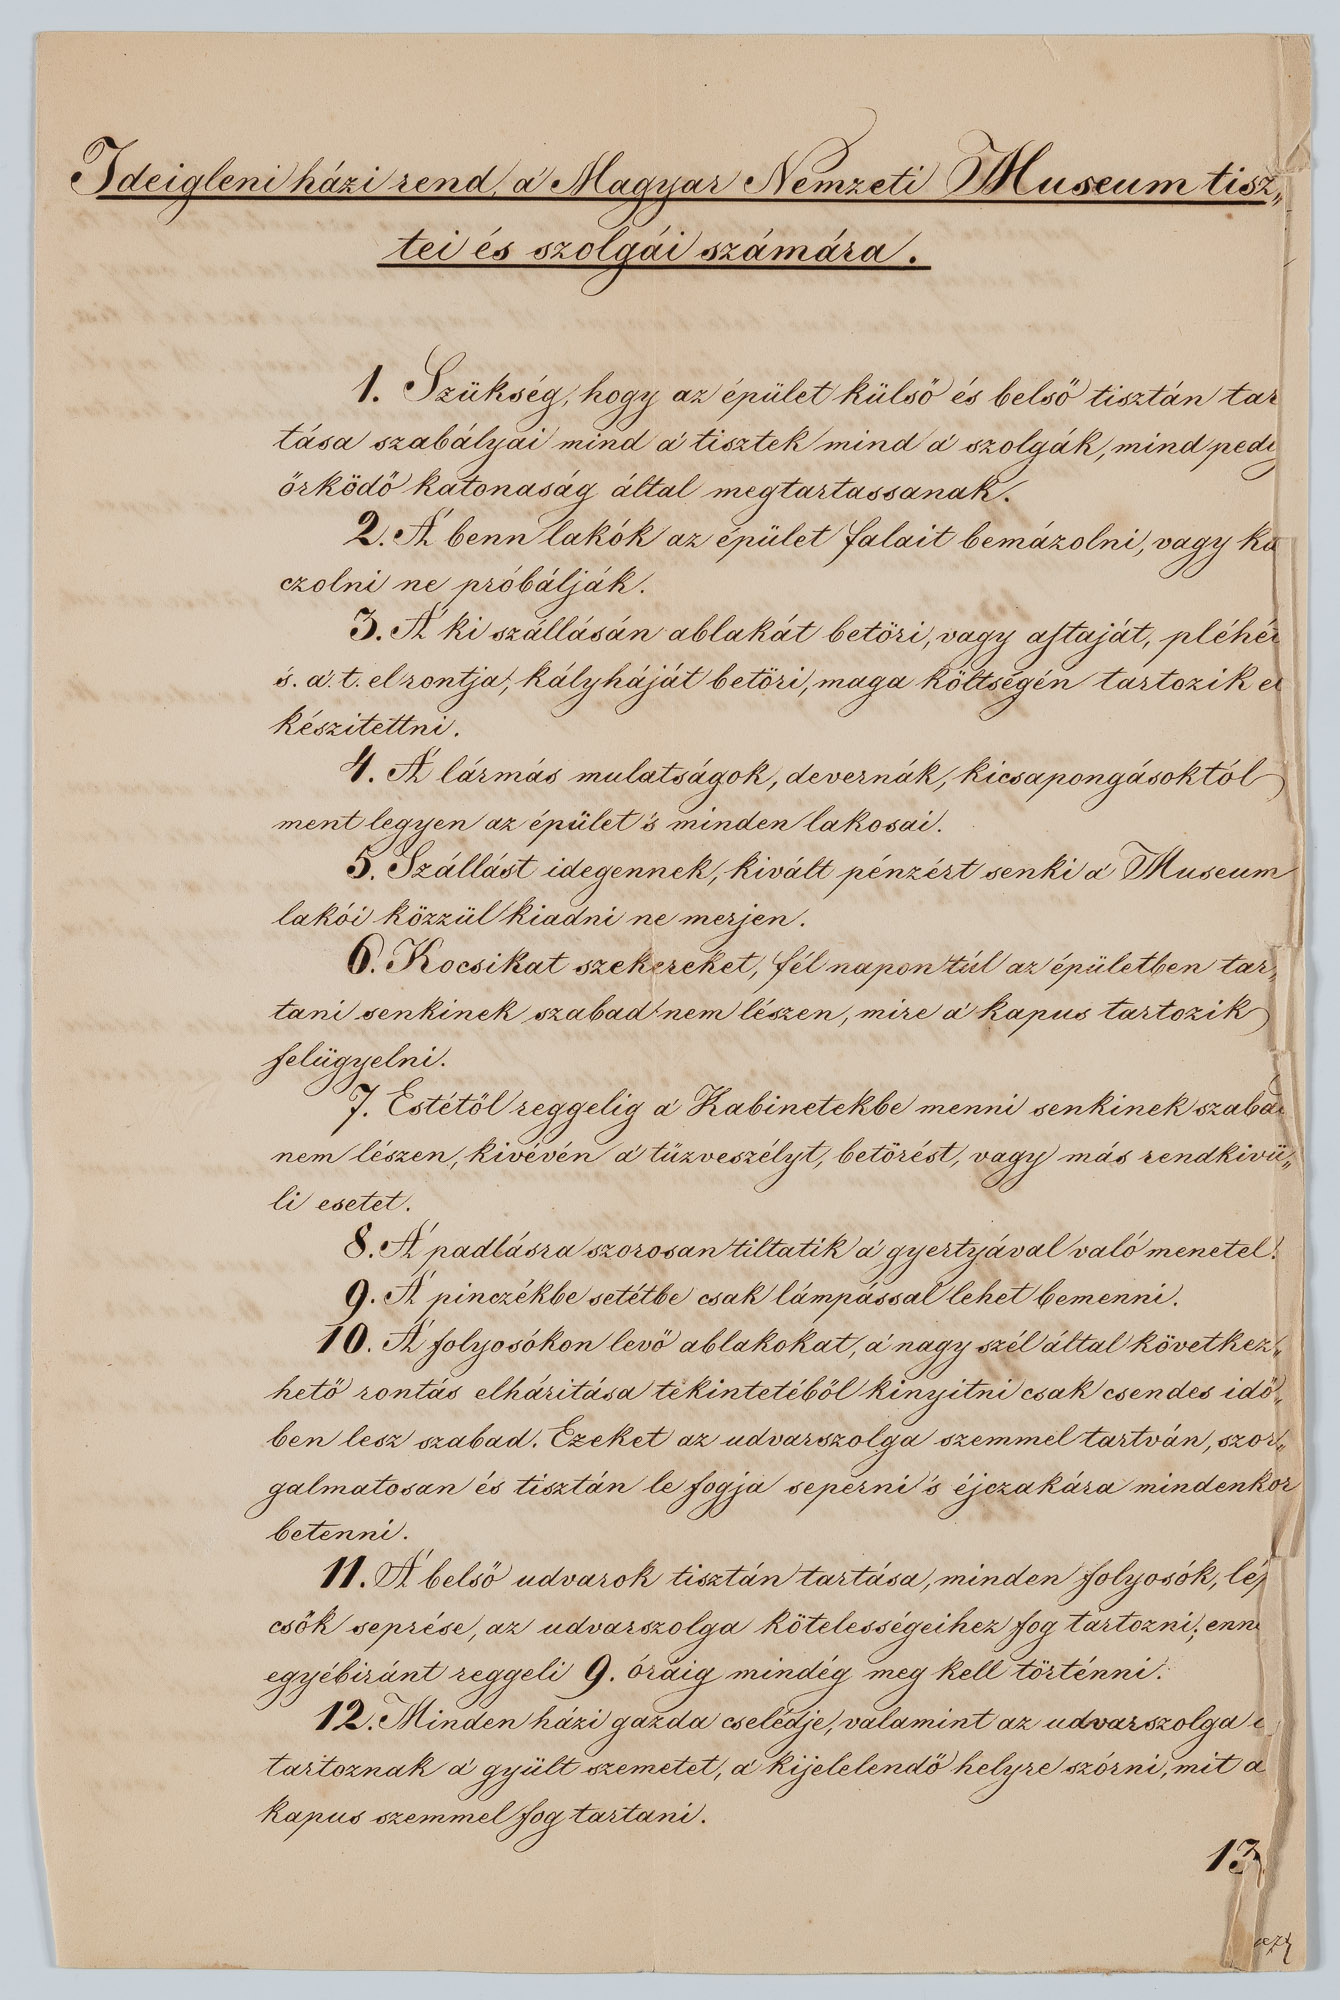 Ideigleni házi rend, a' Magyar Nemzeti Museum tisz„
tei és szolgái számára.
1. Szükség, hogy az épület külső és belső tisztán tar
tása szabályai mind a' tisztek mind a' szolgák, mind pedig
őrködő katonaság által megtartassanak.
2. A' benn lakók az épület falait bemázolni, vagy ka
czolni ne próbálják.
3. A' ki szállásán ablakát betöri, vagy asztaját, pléhét
's. a'. t. elrontja, kályháját betöri, maga költségén tartozik el
készitettni.
4. A' lármás mulatságok, devernák, kicsapongásoktól
ment legyen az épület 's minden lakosai.
5. Szállást idegennek, kivált pénzért senki a' Museum
lakói közzül kiadni ne merjen.
6. Kocsikat szekereket, fél napon túl az épületben tar„
tani senkinek szabad nem lészen, mire a' kapus tartozik
felügyelni.
7. Estétöl reggelig a' Kabinetekbe menni senkinek szabad
nem lészen, kivévén a' tüzveszélyt, betörést, vagy más rendkivü„
li esetet.
8. A' padlásra szorosan tiltatik a' gyertyával való menetel.
9. A' pinczékbe setétbe csak lámpással lehet bemenni.
10. A' folyosókon levő ablakokat, a' nagy szél által következ„
hető rontás elháritása tekintetéből kinyitni csak csendes idő„
ben lesz szabad. Ezeket az udvarszolga szemmel tartván, szor„
galmatosan és tisztán le fogja seperni 's éjczakára mindenkor
betenni.
11. A' belső udvarok tisztán tartása, minden folyosók, lép
csők seprése, az udvarszolga kötelességeihez fog tartozni; enn
egyébiránt reggeli 9. óráig mindég meg kell történni.
12. Minden házi gazda cselédje, valamint az udvarszolga
tartoznak a' gyült szemetet, a' kijelelendő helyre szórni, mit a
kapus szemmel fog tartani.
13.